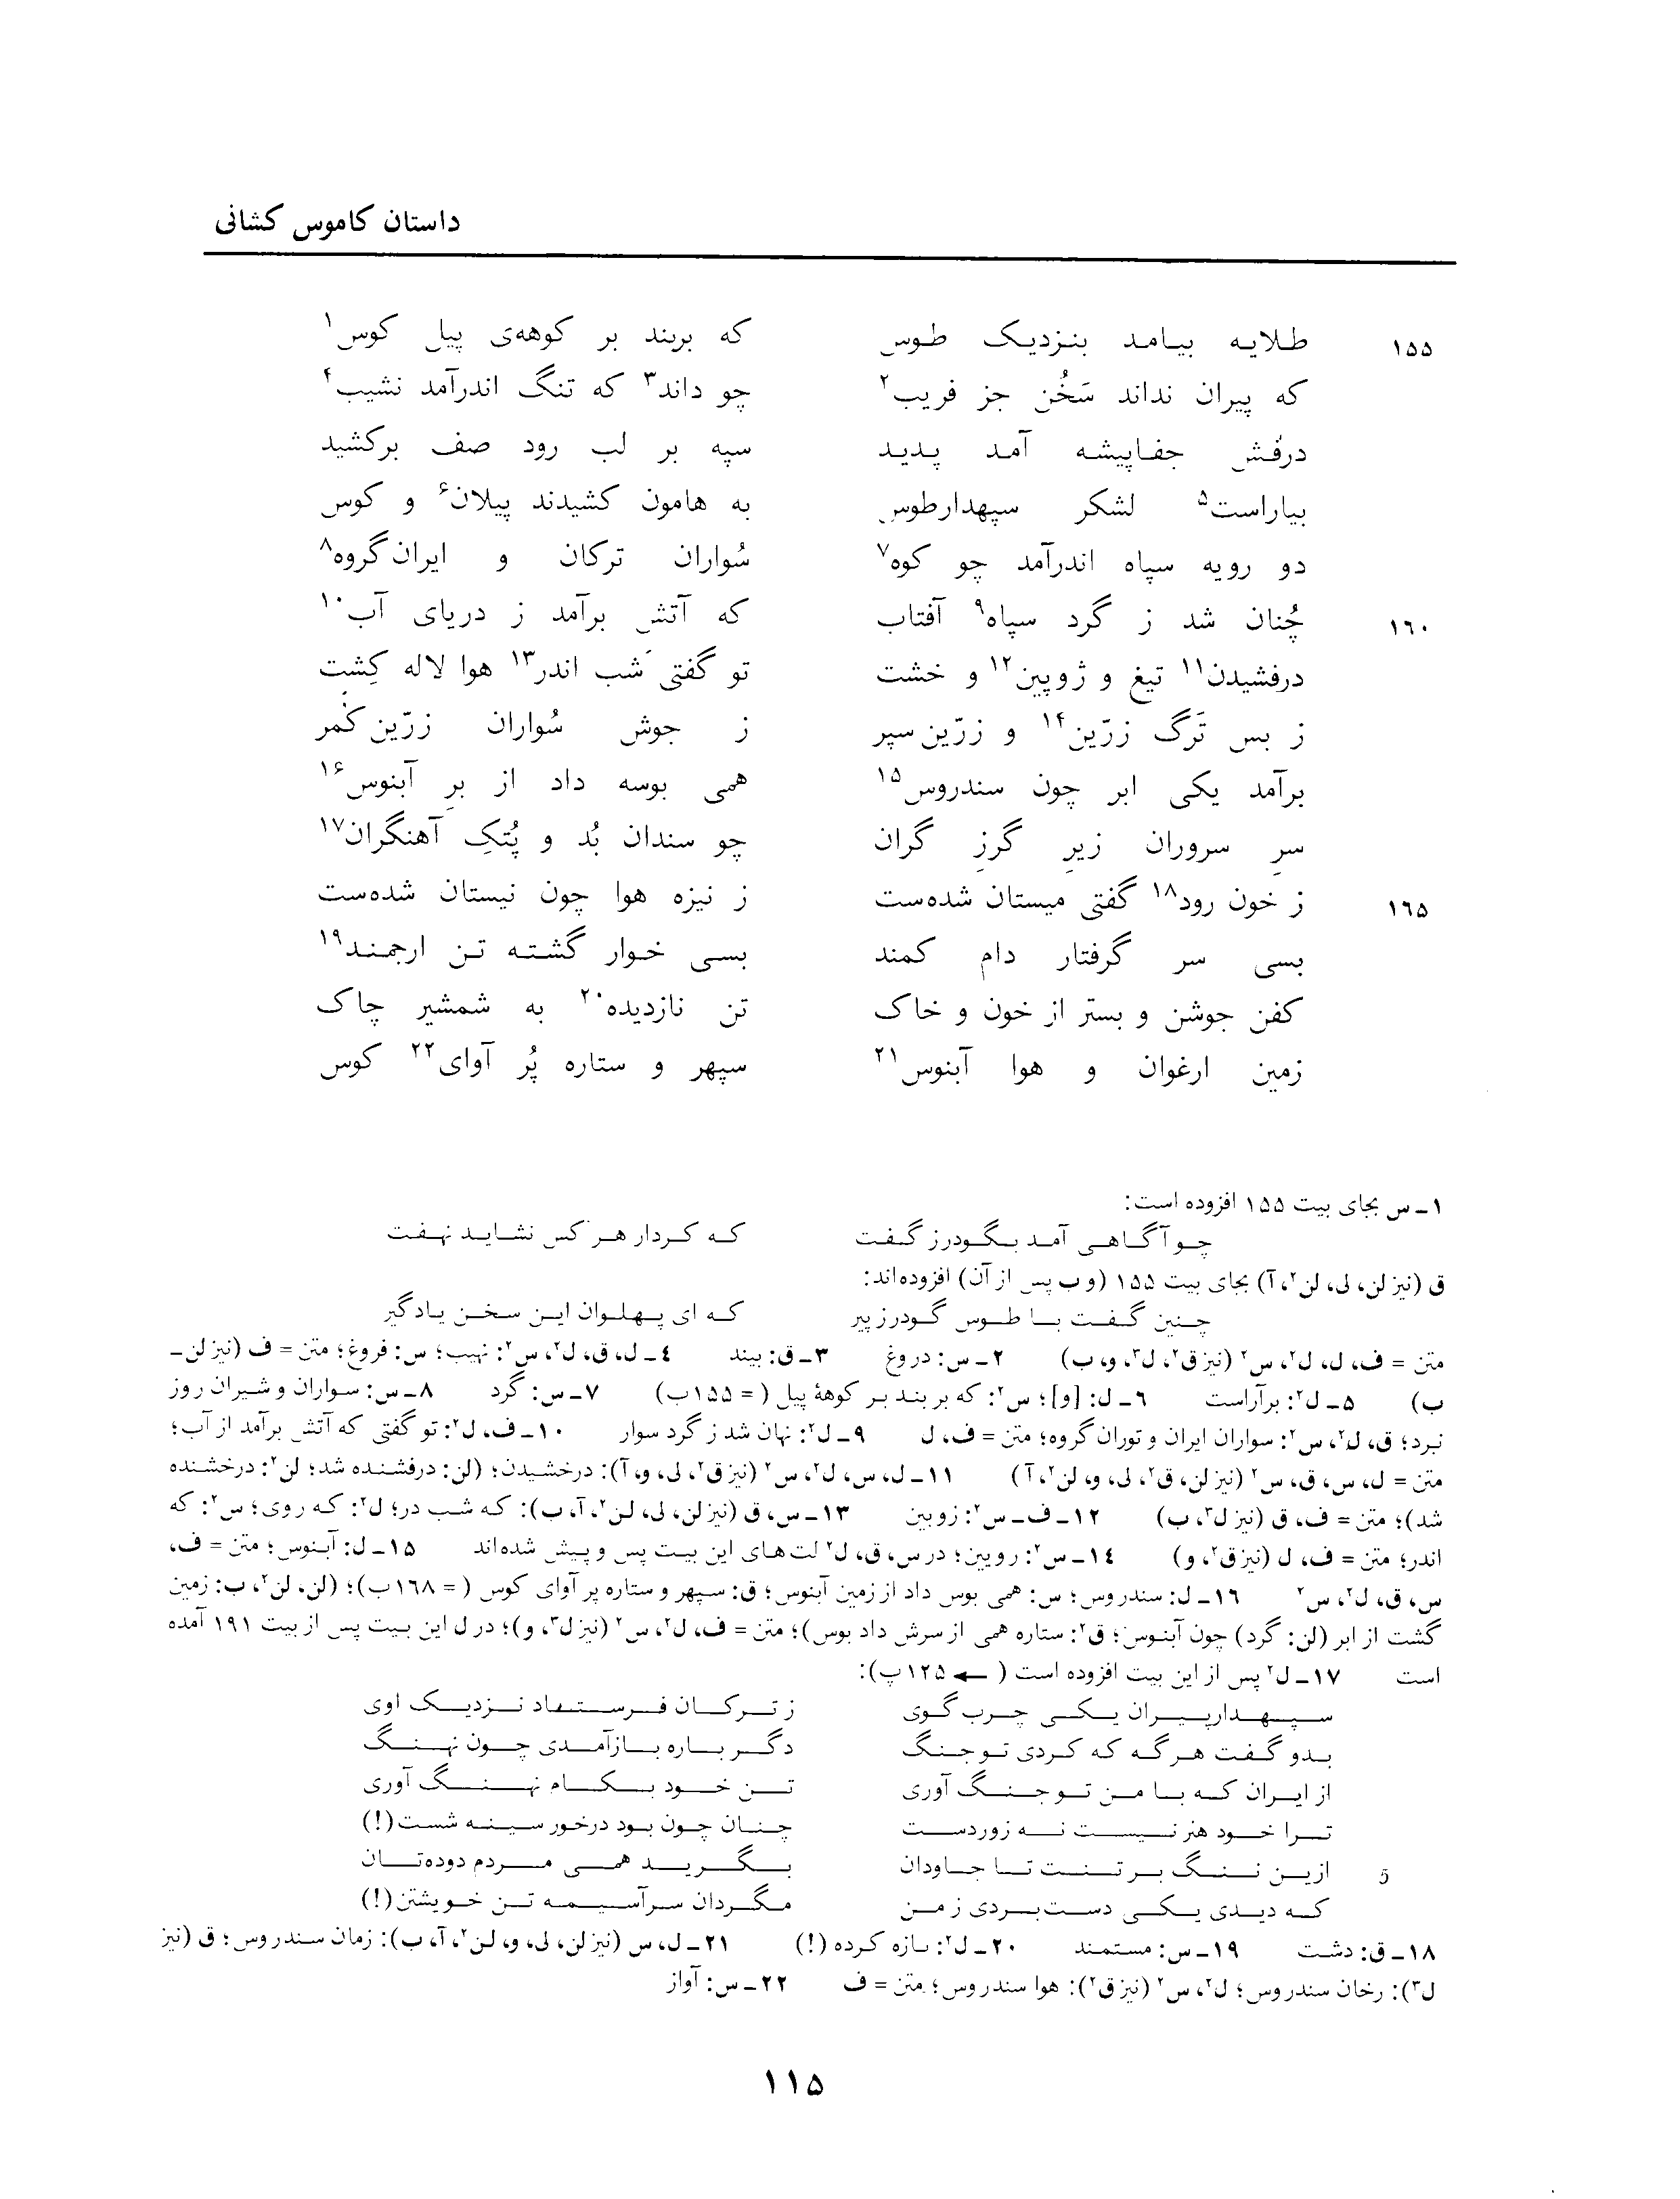 داستان کاموس کشانی
۱۵۵ طلایه بیامد بنزدیک طوس که بربند بر کوهه‌ی پیل کوس۱
که پیران نداند سَخُن جز فریب۲ چو داند۳ که تنگ اندرآمد نشیب۴
درفش جفاپیشه آمد پدید سپه بر لب رود صف برکشید
بیاراست۵ لشکر سپهدارطوس به هامون کشیدند پیلان۶ و کوس
دو رویه سپاه اندرآمد چو کوه۷ سُواران ترکان و ایران‌گروه۸
۱۶۰ چُنان شد ز گرد سپاه۹ آفتاب که آتش برآمد ز دریای آب۱۰
درفشیدن۱۱ تیغ و ژوپین۱۲ و خشت تو گفتی شب اندر۱۳ هوا لاله کِشت
ز بس تَرگ زرّین۱۴ و زرّین‌سپر ز جوش سُواران زرّین‌کمر
برآمد یکی ابر چون سندروس۱۵ همی بوسه داد از برِ آبنوس۱۶
سرِ سروران زیرِ گرزِ گران چو سندان بُد و پُتکِ آهنگران۱۷
۱۶۵ ز خون رود۱۸ گفتی میستان شده‌ست ز نیزه هوا چون نیستان شده‌ست
بسی سر گرفتار دام کمند بسی خوار گشته تن ارجمند۱۹
کفن جوشن و بستر از خون و خاک تن نازدیده۲۰ به شمشیر چاک
زمین ارغوان و هوا آبنوس۲۱ سپهر و ستاره پُر آوای۲۲ کوس
۱ـ س بجای بیت ۱۵۵ افزوده است:
چو آگاهی آمد بگودرز گفت که کردار هر کس نشاید نهفت
ق (نیز لن، لی، لن۲، آ) بجای بیت ۱۵۵ (و ب پس از آن) افزوده‌اند:
چنین گفت با طوس گودرز پیر که ای پهلوان این سخن یادگیر
متن = ف، ل، ل۲، س۲ (نیز ق۲، ل۳، و، ب) ۲ـ س: دروغ ۳ـ ق: بیند ۴ـ ل، ق، ل۲، س۲: نهیب؛ س: فروغ؛ متن = ف (نیز لن ـ
ب) ۵ـ ل۲: برآراست ۶ـ ل: [و]؛ س۲: که بربند بر کوههٔ پیل (= ۱۵۵ب) ۷ـ س: گرد ۸ـ س: سواران و شیران روز
نبرد؛ ق، ل۲، س۲: سواران ایران و توران گروه؛ متن = ف، ل ۹ـ ل۲: نهان شد ز گرد سوار ۱۰ـ ف، ل۲: تو گفتی که آتش برآمد از آب؛
متن = ل، س، ق، س۲ (نیز لن، ق۲، لی، و، لن۲، آ) ۱۱ـ ل، س، ل۲، س۲ (نیز ق۲، لی، و، آ): درخشیدن؛ (لن: درفشنده شد؛ لن۲: درخشنده
شد)؛ متن = ف، ق (نیز ل۳، ب) ۱۲ـ ف ـ س۲: زوبین ۱۳ـ س، ق (نیز لن، لی، لن۲، آ، ب): که شب در؛ ل۲: که روی؛ س۲: که
اندر؛ متن = ف، ل (نیز ق۲، و) ۱۴ـ س۲: رویین؛ در س، ق، ل۲ لت‌های این بیت پس و پیش شده‌اند ۱۵ـ ل: آبنوس؛ متن = ف،
س، ق، ل۲، س۲ ۱۶ـ ل: سندروس؛ س: همی بوس داد از زمین آبنوس؛ ق: سپهر و ستاره پر آوای کوس (= ۱۶۸ب)؛ (لن، لن۲، ب: زمین
گشت از ابر (لن: گرد) چون آبنوس؛ ق۲: ستاره همی از سرش داد بوس)؛ متن = ف، ل۲، س۲ (نیز ل۳، و)؛ در ل این بیت پس از بیت ۱۹۱ آمده
است ۱۷ـ ل۲ پس از این بیت افزوده است (← ۱۲۵پ):
سپهدارپیران یکی چرب گوی ز ترکان فرستاد نزدیک اوی
بدو گفت هرگه که کردی تو جنگ دگر باره بازآمدی چون نهنگ
از ایران که با من تو جنگ آوری تن خود بکام نهنگ آوری
ترا خود هنر نیست نه زوردست چنان چون بود درخور سینه شست(!)
5 ازین ننگ بر تنت تا جاودان بگرید همی مردم دوده‌تان
که دیدی یکی دست‌بردی ز من مگردان سرآسیمه تن خویشتن(!)
۱۸ـ ق: دشت ۱۹ـ س: مستمند ۲۰ـ ل۲: بازه کرده (!) ۲۱ـ ل، س (نیز لن، لی، و، لن۲، آ، ب): زمان سندروس؛ ق (نیز
ل۳): رخان سندروس؛ ل۲، س۲ (نیز ق۲): هوا سندروس؛ متن = ف ۲۲ـ س: آواز
۱۱۵